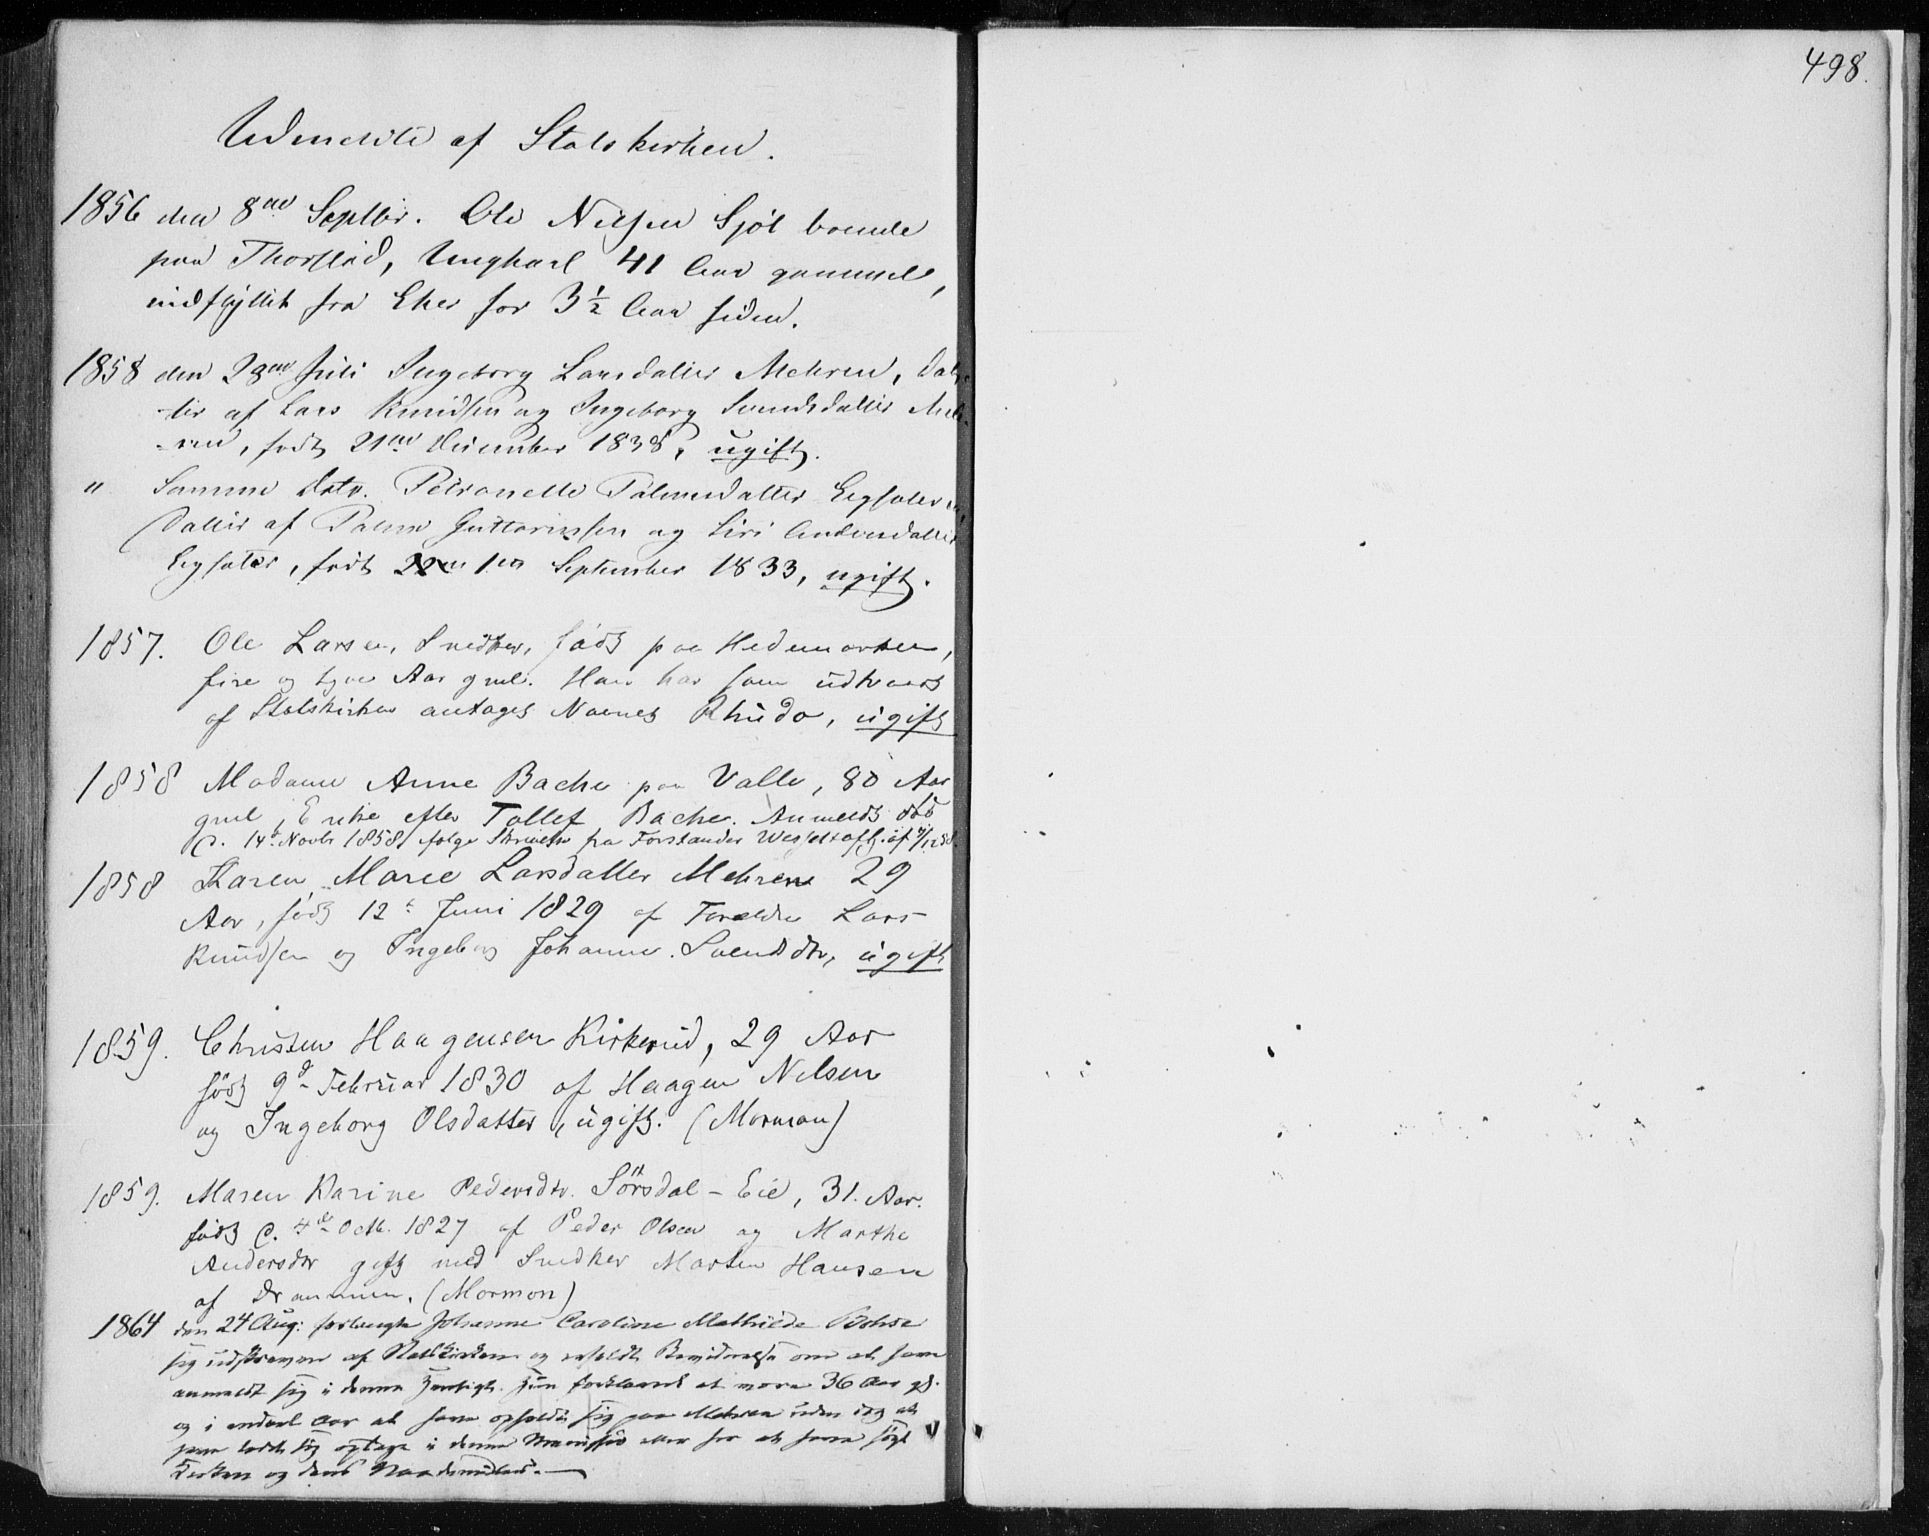 498.
Udmeldte af Statskirken.
1856 den 8de Septbr. Ole Nilsen Sjøl boende
paa Thorstad, Ungkarl 41 Aar gammel,
indflyttet fra Eker for 3½ Aar siden.
1858 den 28de Juli Ingeborg Larsdatter Mehren, Dat-
ter af Lars Knudsen og Ingeborg Svendsdatter Meh-
ren, født 21de December 1838, ugift.
" Samme Dato. Petronelle Palmesdatter Egsæter
Datter af Palme Guttormsen og Siri Andersdatter
Egsæter, født 1ste September 1833, ugift.
1857. Ole Larsen, Snedker, født paa Hedemarken,
fire og tyve Aar gml. Han har som udtraadt
af Statskirken antaget Navnet Rhudo, ugift
1858 Madame Anne Bache paa Valle, 80 Aar
gml, Enke efter Tollef Bache. Anmeldt død
d. 14d Novbr 1858 ifølge Skrivelse fra Forstander af
1858 Karen Marie Larsdatter Mehren 29
Aar, født 12t Juni 1829 af Forældre Lars
Knudsen og Ingeborg Johanne Svendsdtr, ugift
1859. Christen Haagensen Kirkerud, 29 Aar
født 9d Februar 1830 af Haagen Nilsen
og Ingeborg Olsdatter, ugift. (Mormon)
1859. Maren Karine Pedersdtr. Sörsdal-Eie, 31. Aar.
født d. 4de Octb. 1827 af Peder Olsen og Marthe
Andersdtr gift med Snedker Morten Hansen
af Drammen. (Mormon)
1864 den 24 Aug: forlangte Johanne Caroline Mathilde
sig udskreven af Statskirken og erholdt Bevidnelse om at have
anmeldt sig i denne Hensigt. Hun forklarede at være 36 Aar gl.
og i Aar at have opholdt sig paa Mehren uden dog at
have ladt sig optage i denne eller for at have søgt
Kirken og dens Naademidler.